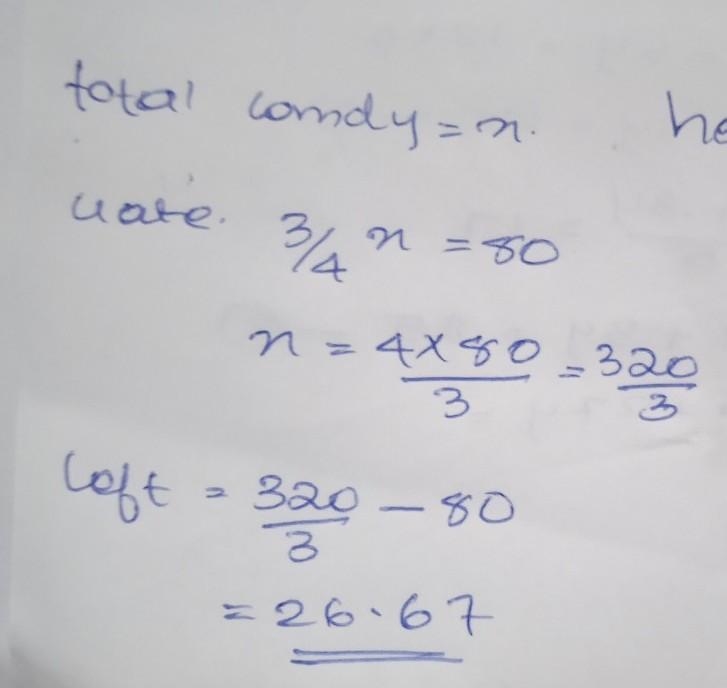 total comdy = x. he
uate. 3/4 x = 80
x = 4×80/3 = 320/3
left = 320/3 - 80
= 26.67